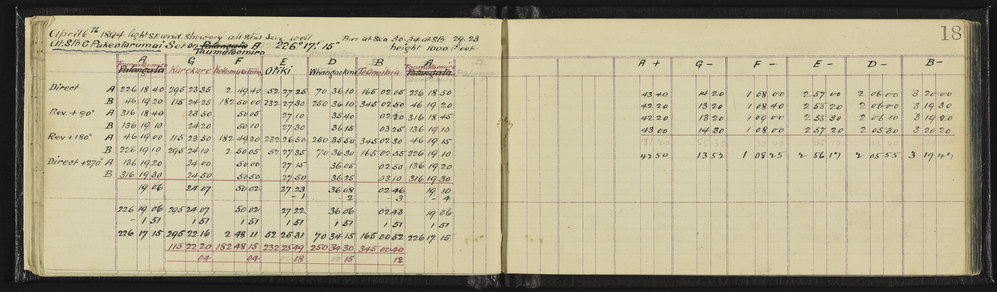 April 6th 1894 light SE wind showery all stns seen well Bar at Sea 30.34 at Stn 29.23
At Stn C Pukeotarumai Set on A 226° 17' 15" height 1000 feet
18
A G F E D B A
Karekare Otiki
Direct A 226 18 40 295 23 35 2 49 40 52 27 25 70 36 10 165 02 05 226 18 50
B 46 19 20 115 24 25 182 50 00 232 27 30 250 36 10 345 02 50 46 19 20
Rev. + 90° A 316 18 40 23 50 50 05 27 10 35 40 02 20 316 18 45
B 136 19 10 24 20 50 10 27 30 36 15 03 25 136 19 10
Rev + 180° A 46 19 00 115 23 50 182 49 20 232 26 50 250 35 50 345 02 30 46 19 15
B 226 19 10 295 24 10 2 50 05 52 27 35 70 36 30 165 02 55 226 19 10
Direct + 270° A 136 19 20 24 00 50 00 27 15 36 05 02 50 136 19 20
B 316 19 30 24 50 50 50 27 50 36 25 03 10 316 19 30
19 06 24 07 50 02 27 23 36 08 02 46 19 10
- 1 - 2 - 3 - 4
226 19 06 295 24 07 50 02 27 22 36 06 02 43 19 06
- 1 51 1 51 1 51 1 51 1 51 1 51 1 51
226 17 15 295 22 16 2 48 11 52 25 31 70 34 15 165 00 52 226 17 15
115 22 20 182 48 15 232 25 49 250 34 30 345 00 40
04 04 18 15 12
A + G - F - E - D - B -
43 40 14 20 1 08 00 2 57 00 2 06 00 3 20 00
42 20 13 20 1 08 40 2 55 20 2 06 00 3 19 30
42 20 13 20 1 09 00 2 55 30 2 06 10 3 19 20
43 00 14 30 1 08 00 2 57 20 2 05 30 3 20 20
42 50 13 52 1 08 25 2 56 17 2 05 55 3 19 47